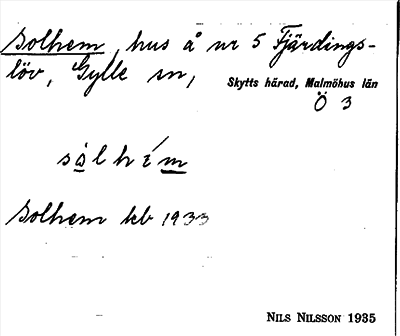 Solhem, hus å nr 5 Fjärdings-
löv, Gylle sn,
Skytts härad, Malmöhus län
Ö 3
sólhém
Solhem kb 1933
NILS NILSSON 1935